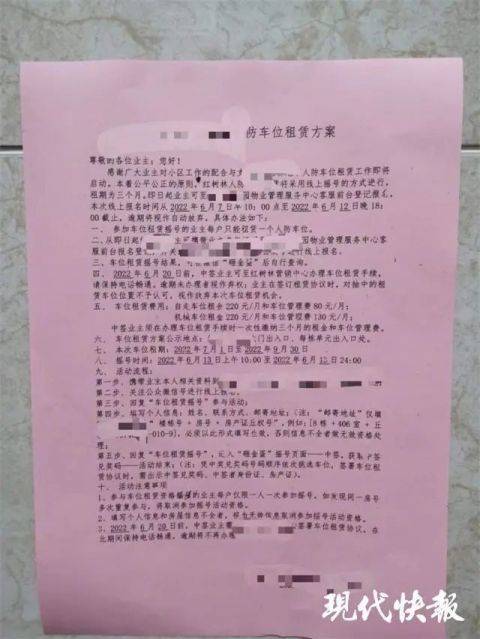 防车位租赁方案
尊敬的各位业主：您好！
感谢广大业主对小区工作的配合与 人防车位租赁工作即将
启动。本着公平公正的原则，红树林人防 将采用线上摇号的方式进行，
租期为三个月。即日起业主可至 园物业管理服务中心客服前台登记报名，
本次线上报名时间从2022年6月7日10：00点至2022年6月12日晚18：
00截止。逾期将视作自动放弃。具体办法如下：
一、参加车位租赁摇号的业主每户只能租赁一个人防车位。
二、从即日起 业主可携带业主 园物业管理服务中心客
服前台报名登 进行线上报名。
三、车位租赁摇号结果， “砸金蛋”后自行查询。
四、2022年6月20日前，中签业主可至红树林营销中心办理车位租赁手续，
请保持电话畅通。逾期未办理者视作弃权；业主在签订租赁协议时，对抽中的租
赁车位位置不予认可，视作放弃本次车位租赁机会。
五、车位租赁费用：自走车位租金220元/月和车位管理费80元/月；
机械车位租金220元/月和车位管理130元/月；
中签业主须在办理车位租赁手续时一次性缴纳三个月的租金和车位管理费。
六、车位租赁方案公示地点： 门出入口、每栋单元出入口处。
七、本次车位租期：2022年7月1日至2022年9月30日
八、摇号时间：2022年6月13日上午10:00至2022年6月15日24:00
九、活动流程：
第一步、携带业主本人相关资料到
第二步、关注公众微信号进行线上报名。
第三步、回复“车位租赁摇号”参与活动；
第四步、填写个人信息：姓名、联系方式、邮寄地址；（注：“邮寄地址”仅填
“楼栋号 + 房号 + 房产证丘权号”，例如：[8栋 + 406室 + 丘
-010-9]，必须以此形式填写也效，否则信息不全者做无效资格处
理；
第五步、回复“车位租赁摇号”，进入“砸金蛋”摇号页面——中签，获取中签
兑奖码——活动结束；（注：凭中奖兑奖码号码顺序依次挑选车位，签署车位租赁
协议时，需出示中签兑奖码、中签者身份证、房产证）。
十、活动注意事项
1、参与车位租赁资格摇号的业主每户仅限一人一次参加摇号，如发现同一房号
多次重复参与，将取消参加摇号活动资格。
2、填写个人信息和房屋信息不全者，视为无效信息取消参加摇号活动资格。
3、2022年6月20日前，中签业主需 签署车位租赁协议，在
此期间保持电话畅通，逾期将不再办理
现代快报